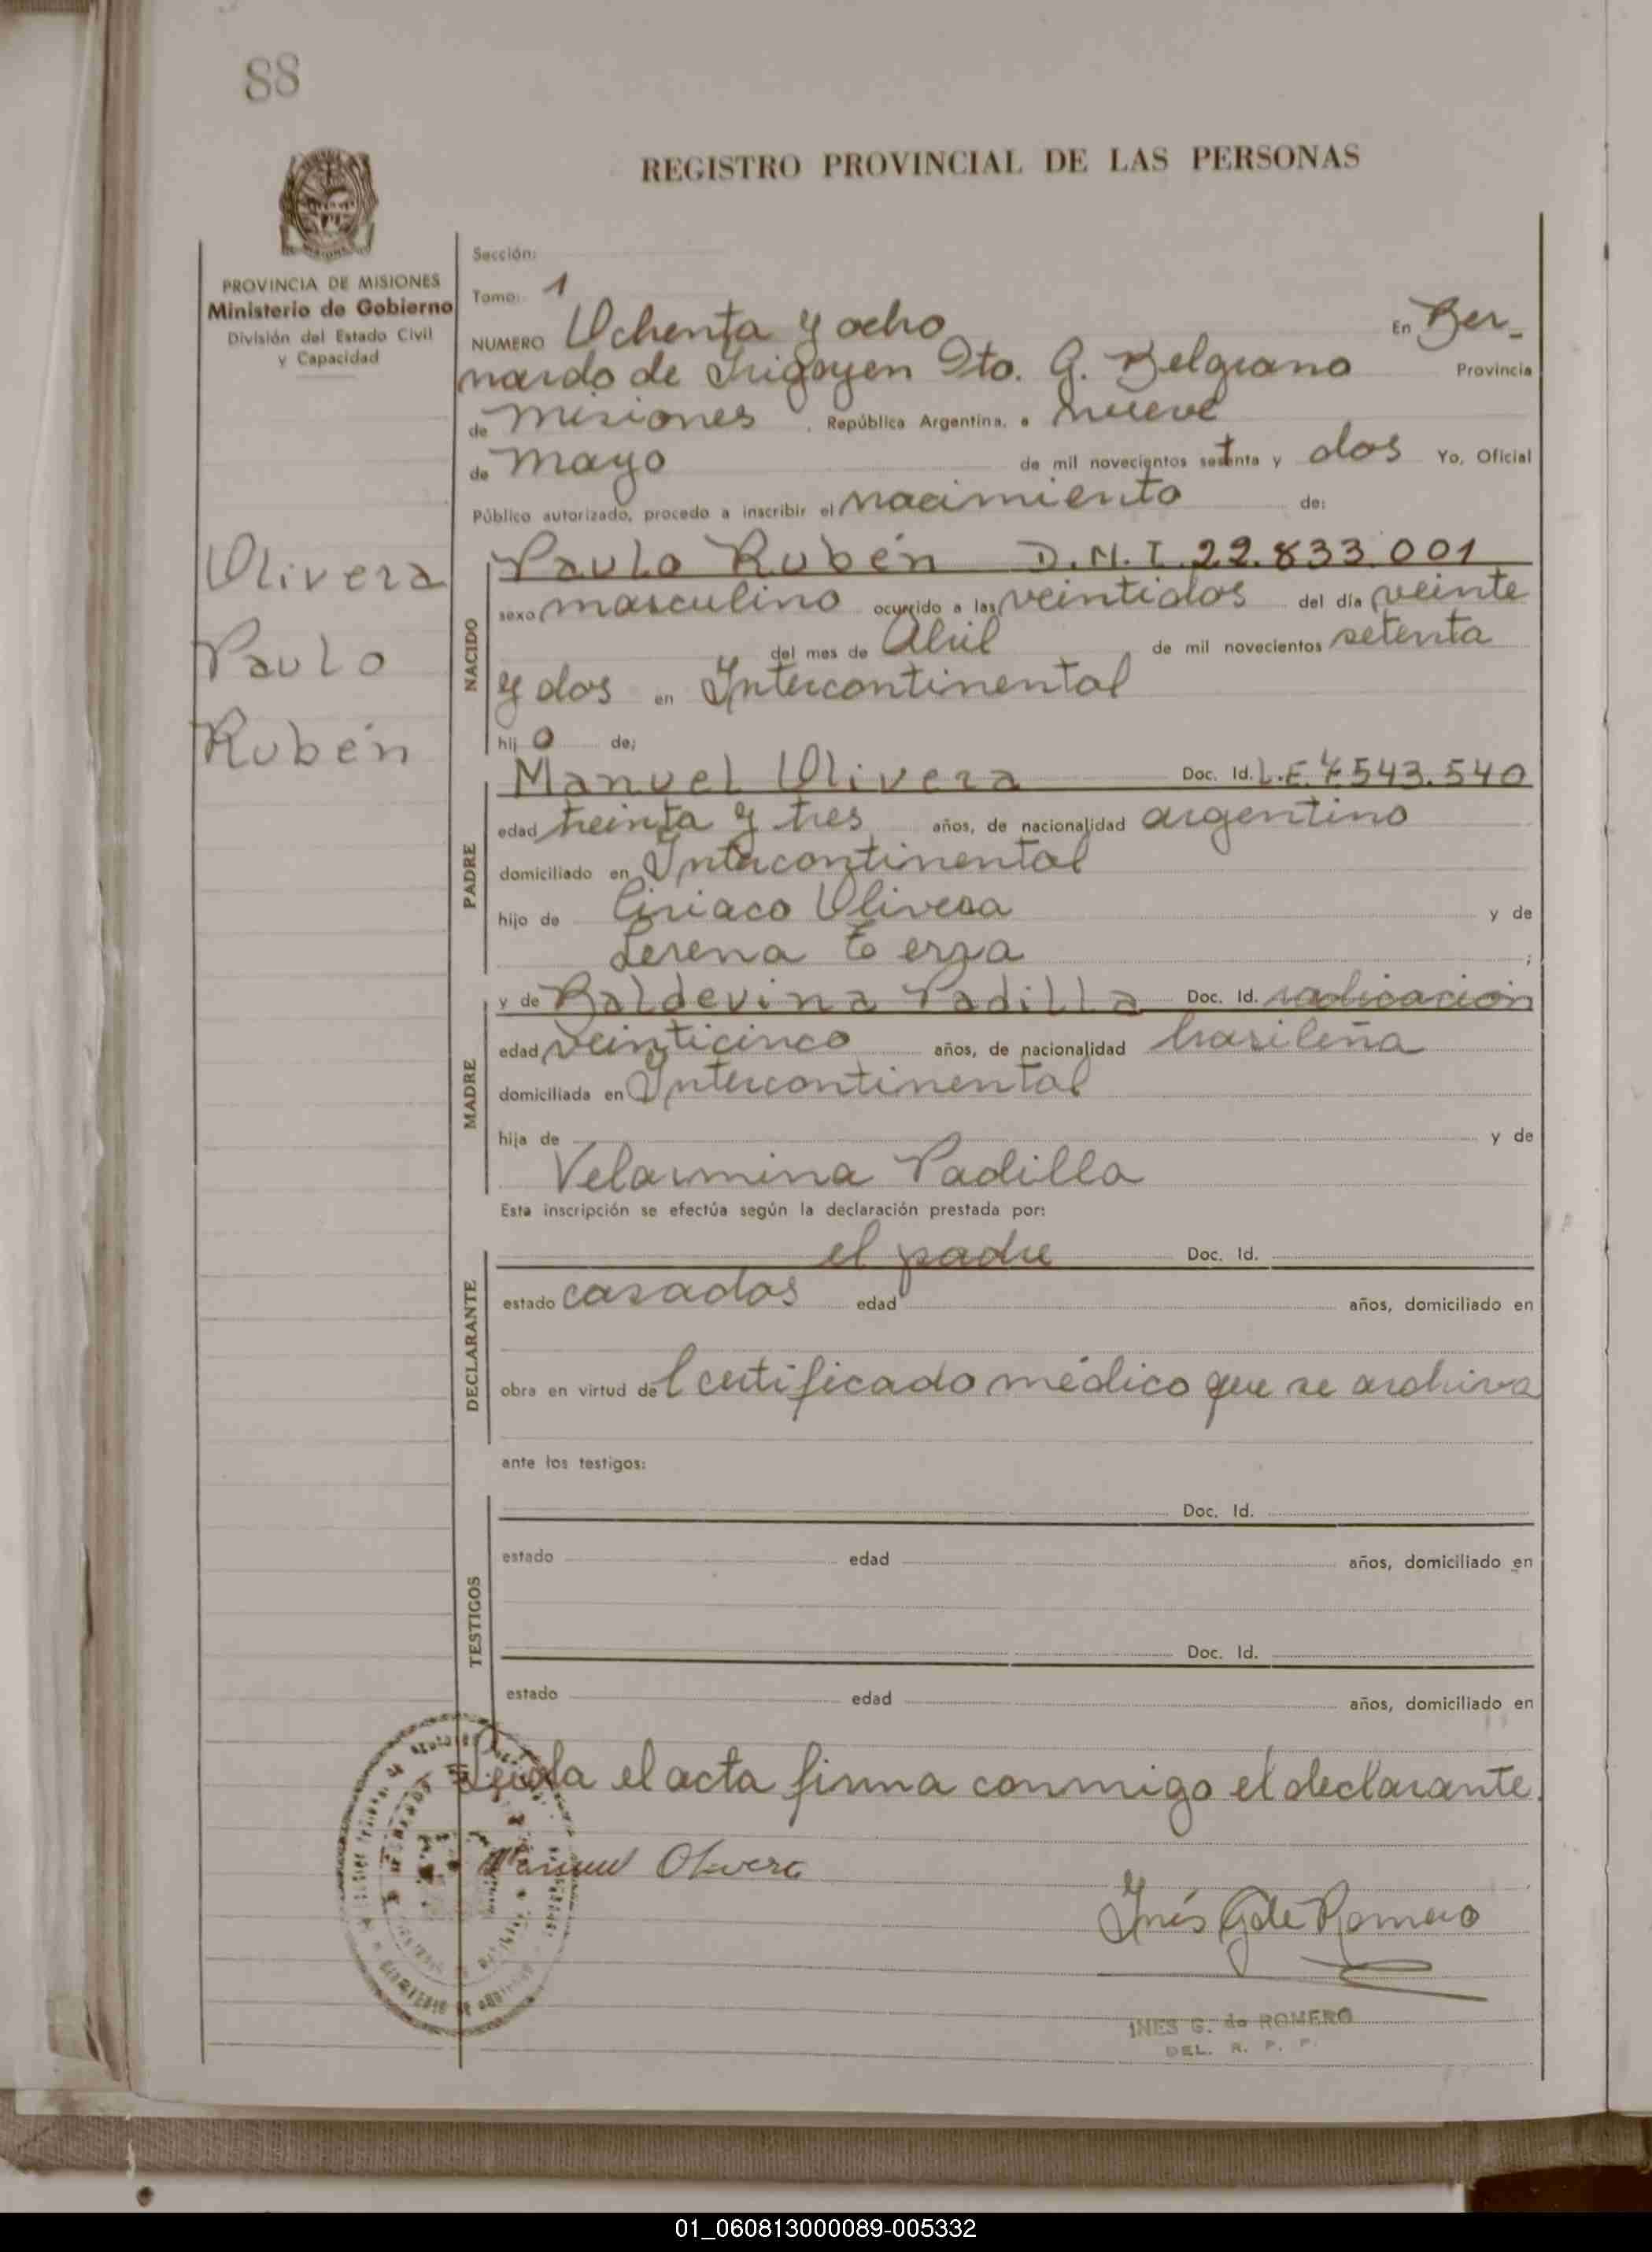 88
REGISTRO PROVINCIAL DE LAS PERSONAS
PROVINCIA DE MISIONES
Ministerio de Gobierno
División del Estado Civil
y Capacidad
Sección:
Tomo: 1
NUMERO Ochenta y ocho En Ber-
nardo de Irigoyen Dto. G. Belgrano Provincia
de Misiones, República Argentina, a nueve
de Mayo de mil novecientos setenta y dos Yo, Oficial
Público autorizado, procedo a inscribir el nacimiento de:
Olivera
Paulo
Rubén
NACIDO
Paulo Rubén D.N.I. 22.833.001
sexo masculino ocurrido a las veintidos del día veinte
del mes de Abril de mil novecientos setenta
y dos en Intercontinental
hij o de;
PADRE
Manuel Olivera Doc. Id. L.E. 7.543.540
edad treinta y tres años, de nacionalidad argentino
domiciliado en Intercontinental
hijo de Ciriaco Olivera y de
Lerena Terza ;
MADRE
y de Baldevina Padilla Doc. Id. radicación
edad veinticinco años, de nacionalidad brasileña
domiciliada en Intercontinental
hija de y de
Velarmina Padilla
Esta inscripción se efectúa según la declaración prestada por:
DECLARANTE
el padre Doc. Id.
estado casados edad años, domiciliado en
obra en virtud del certificado médico que se archiva
ante los testigos:
TESTIGOS
Doc. Id.
estado edad años, domiciliado en
Doc. Id.
estado edad años, domiciliado en
Leida el acta firma conmigo el declarante.
Manuel Olivera
Inés G de Romero
INES G. de ROMERO
DEL. R. P. P.
01_060813000089-005332